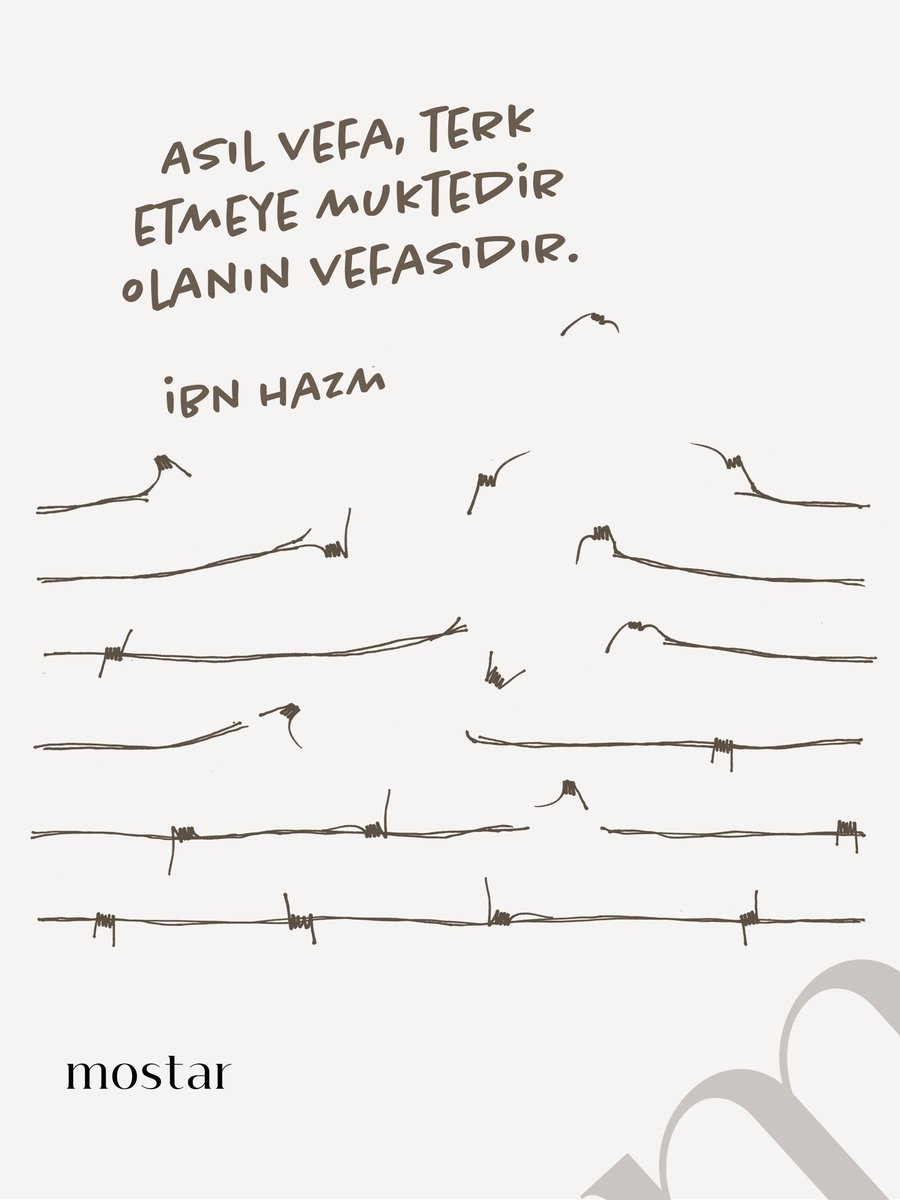 ASIL VEFA, TERK
ETMEYE MUKTEDİR
OLANIN VEFASIDIR.
İBN HAZM
mostar
m